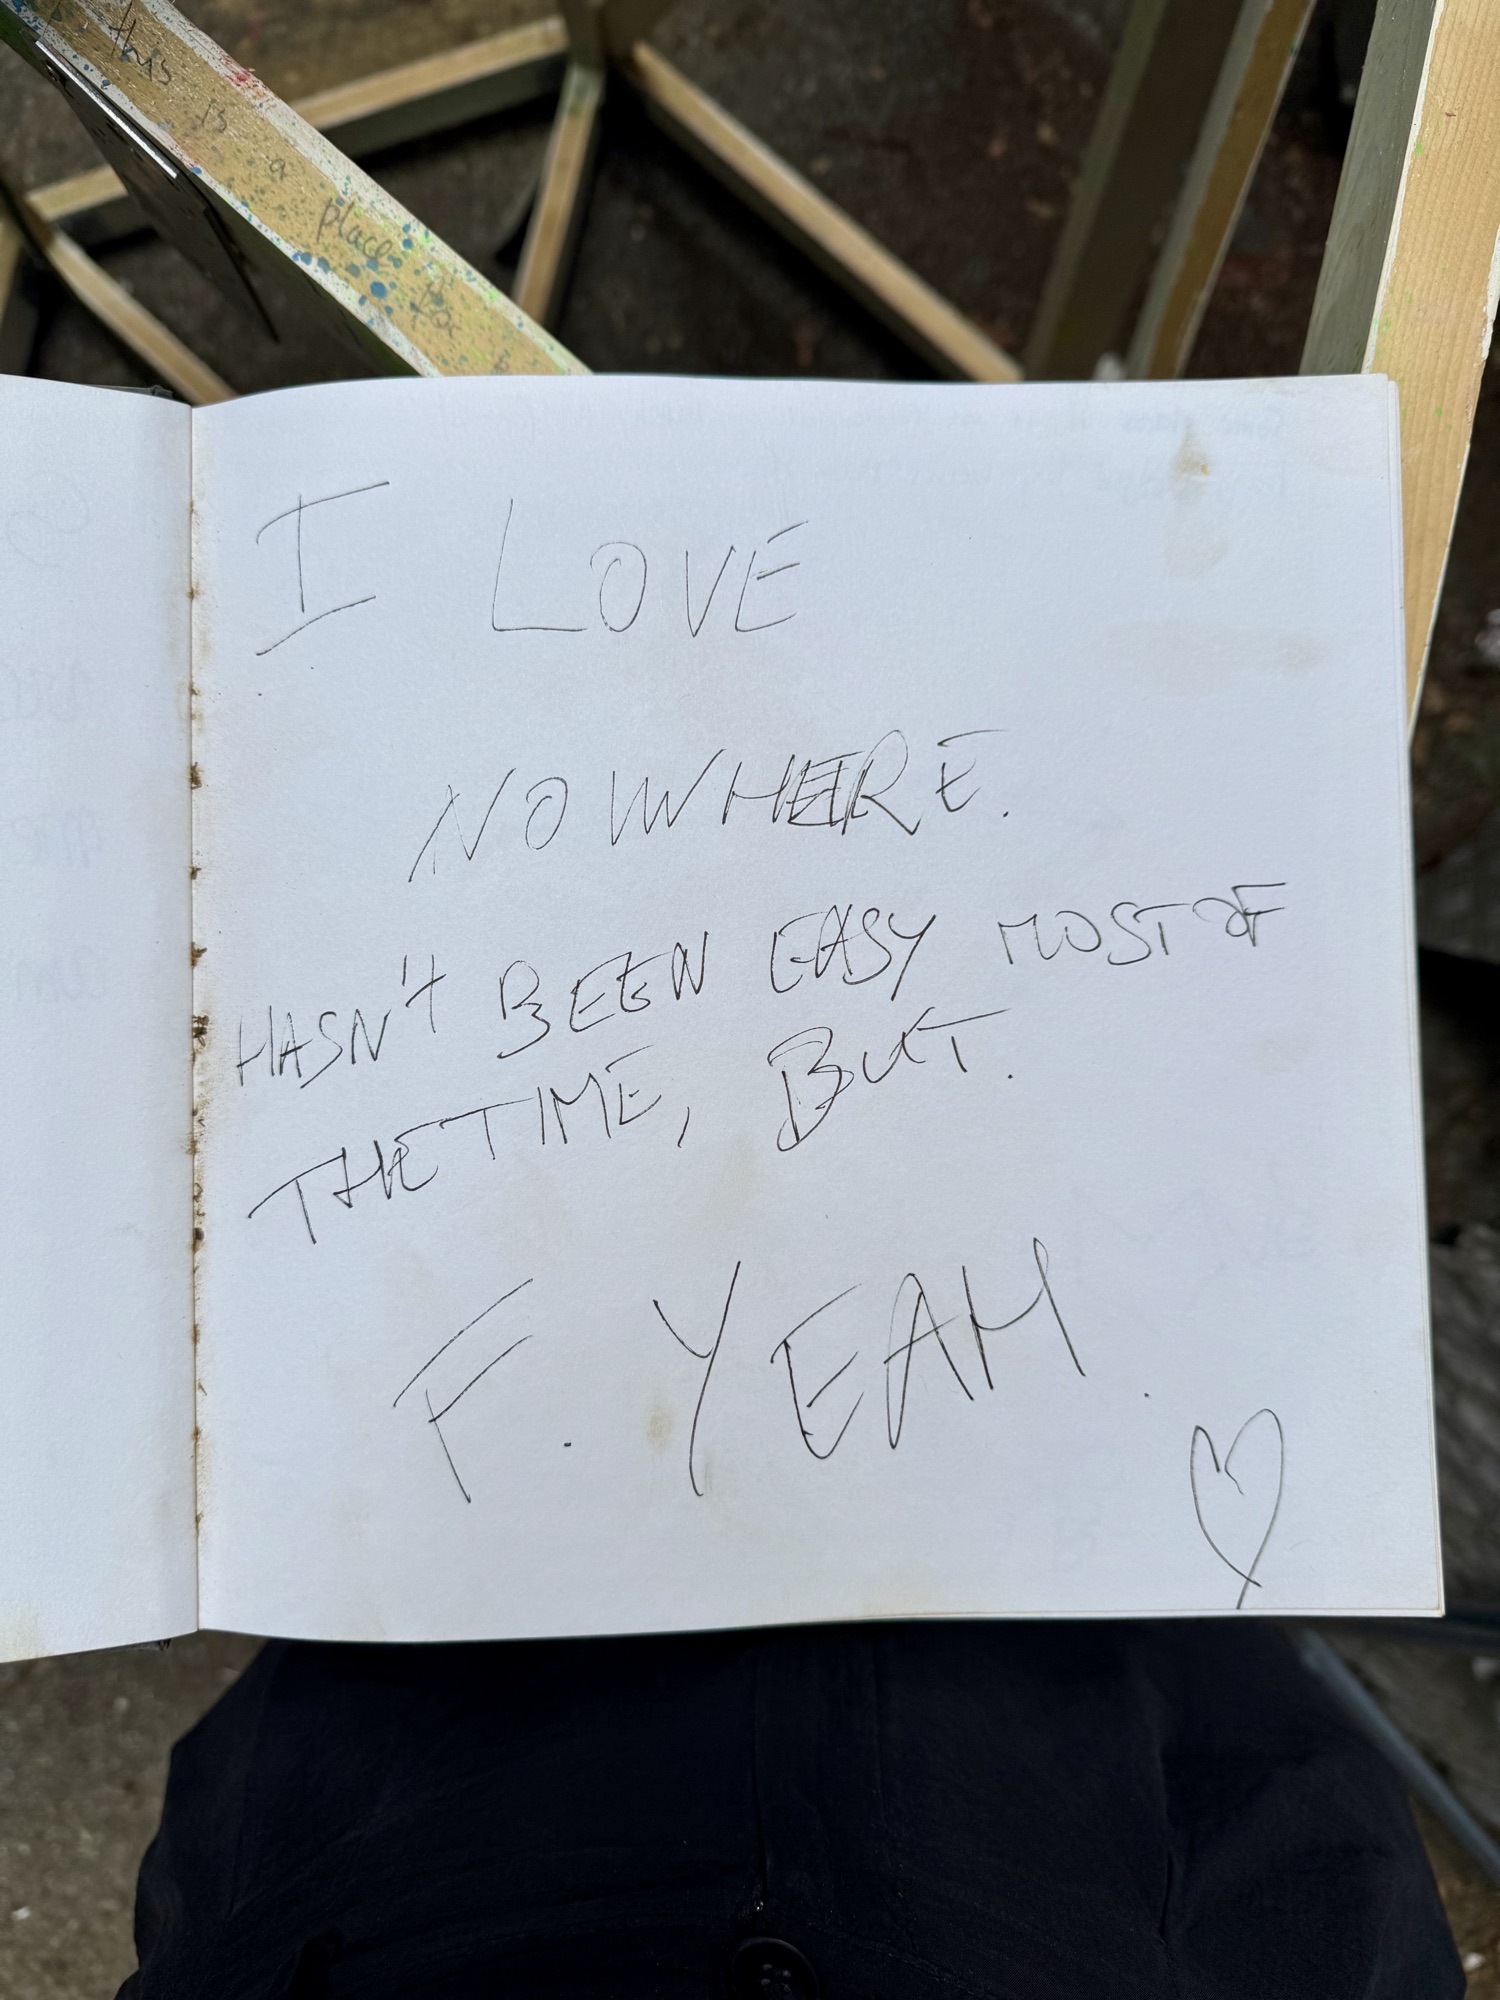 this
is
a
place
for
I LOVE
NOWHERE.
HASN't BEEN EASY MOST OF
THE TIME, BUT.
F. YEAH.